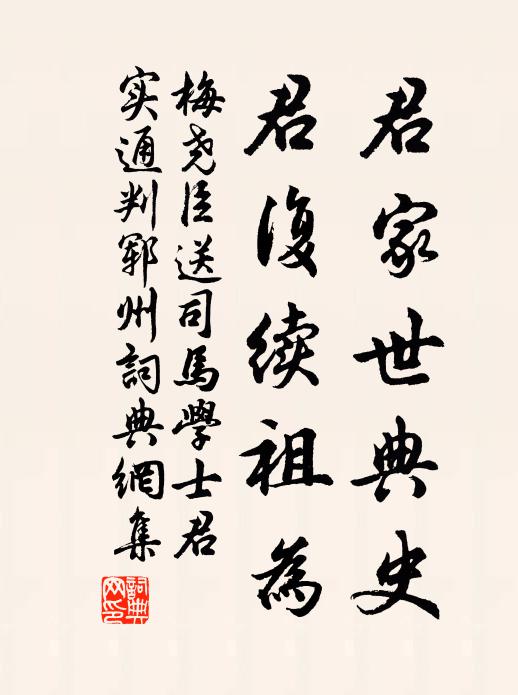 君家世典史
君復續祖為
梅堯臣送司馬學士君
实通判鄆州詞典網集
詞典网印